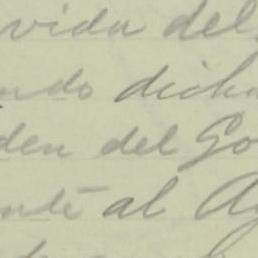 vida del
ndo dicha
den del Go
nte al Ay